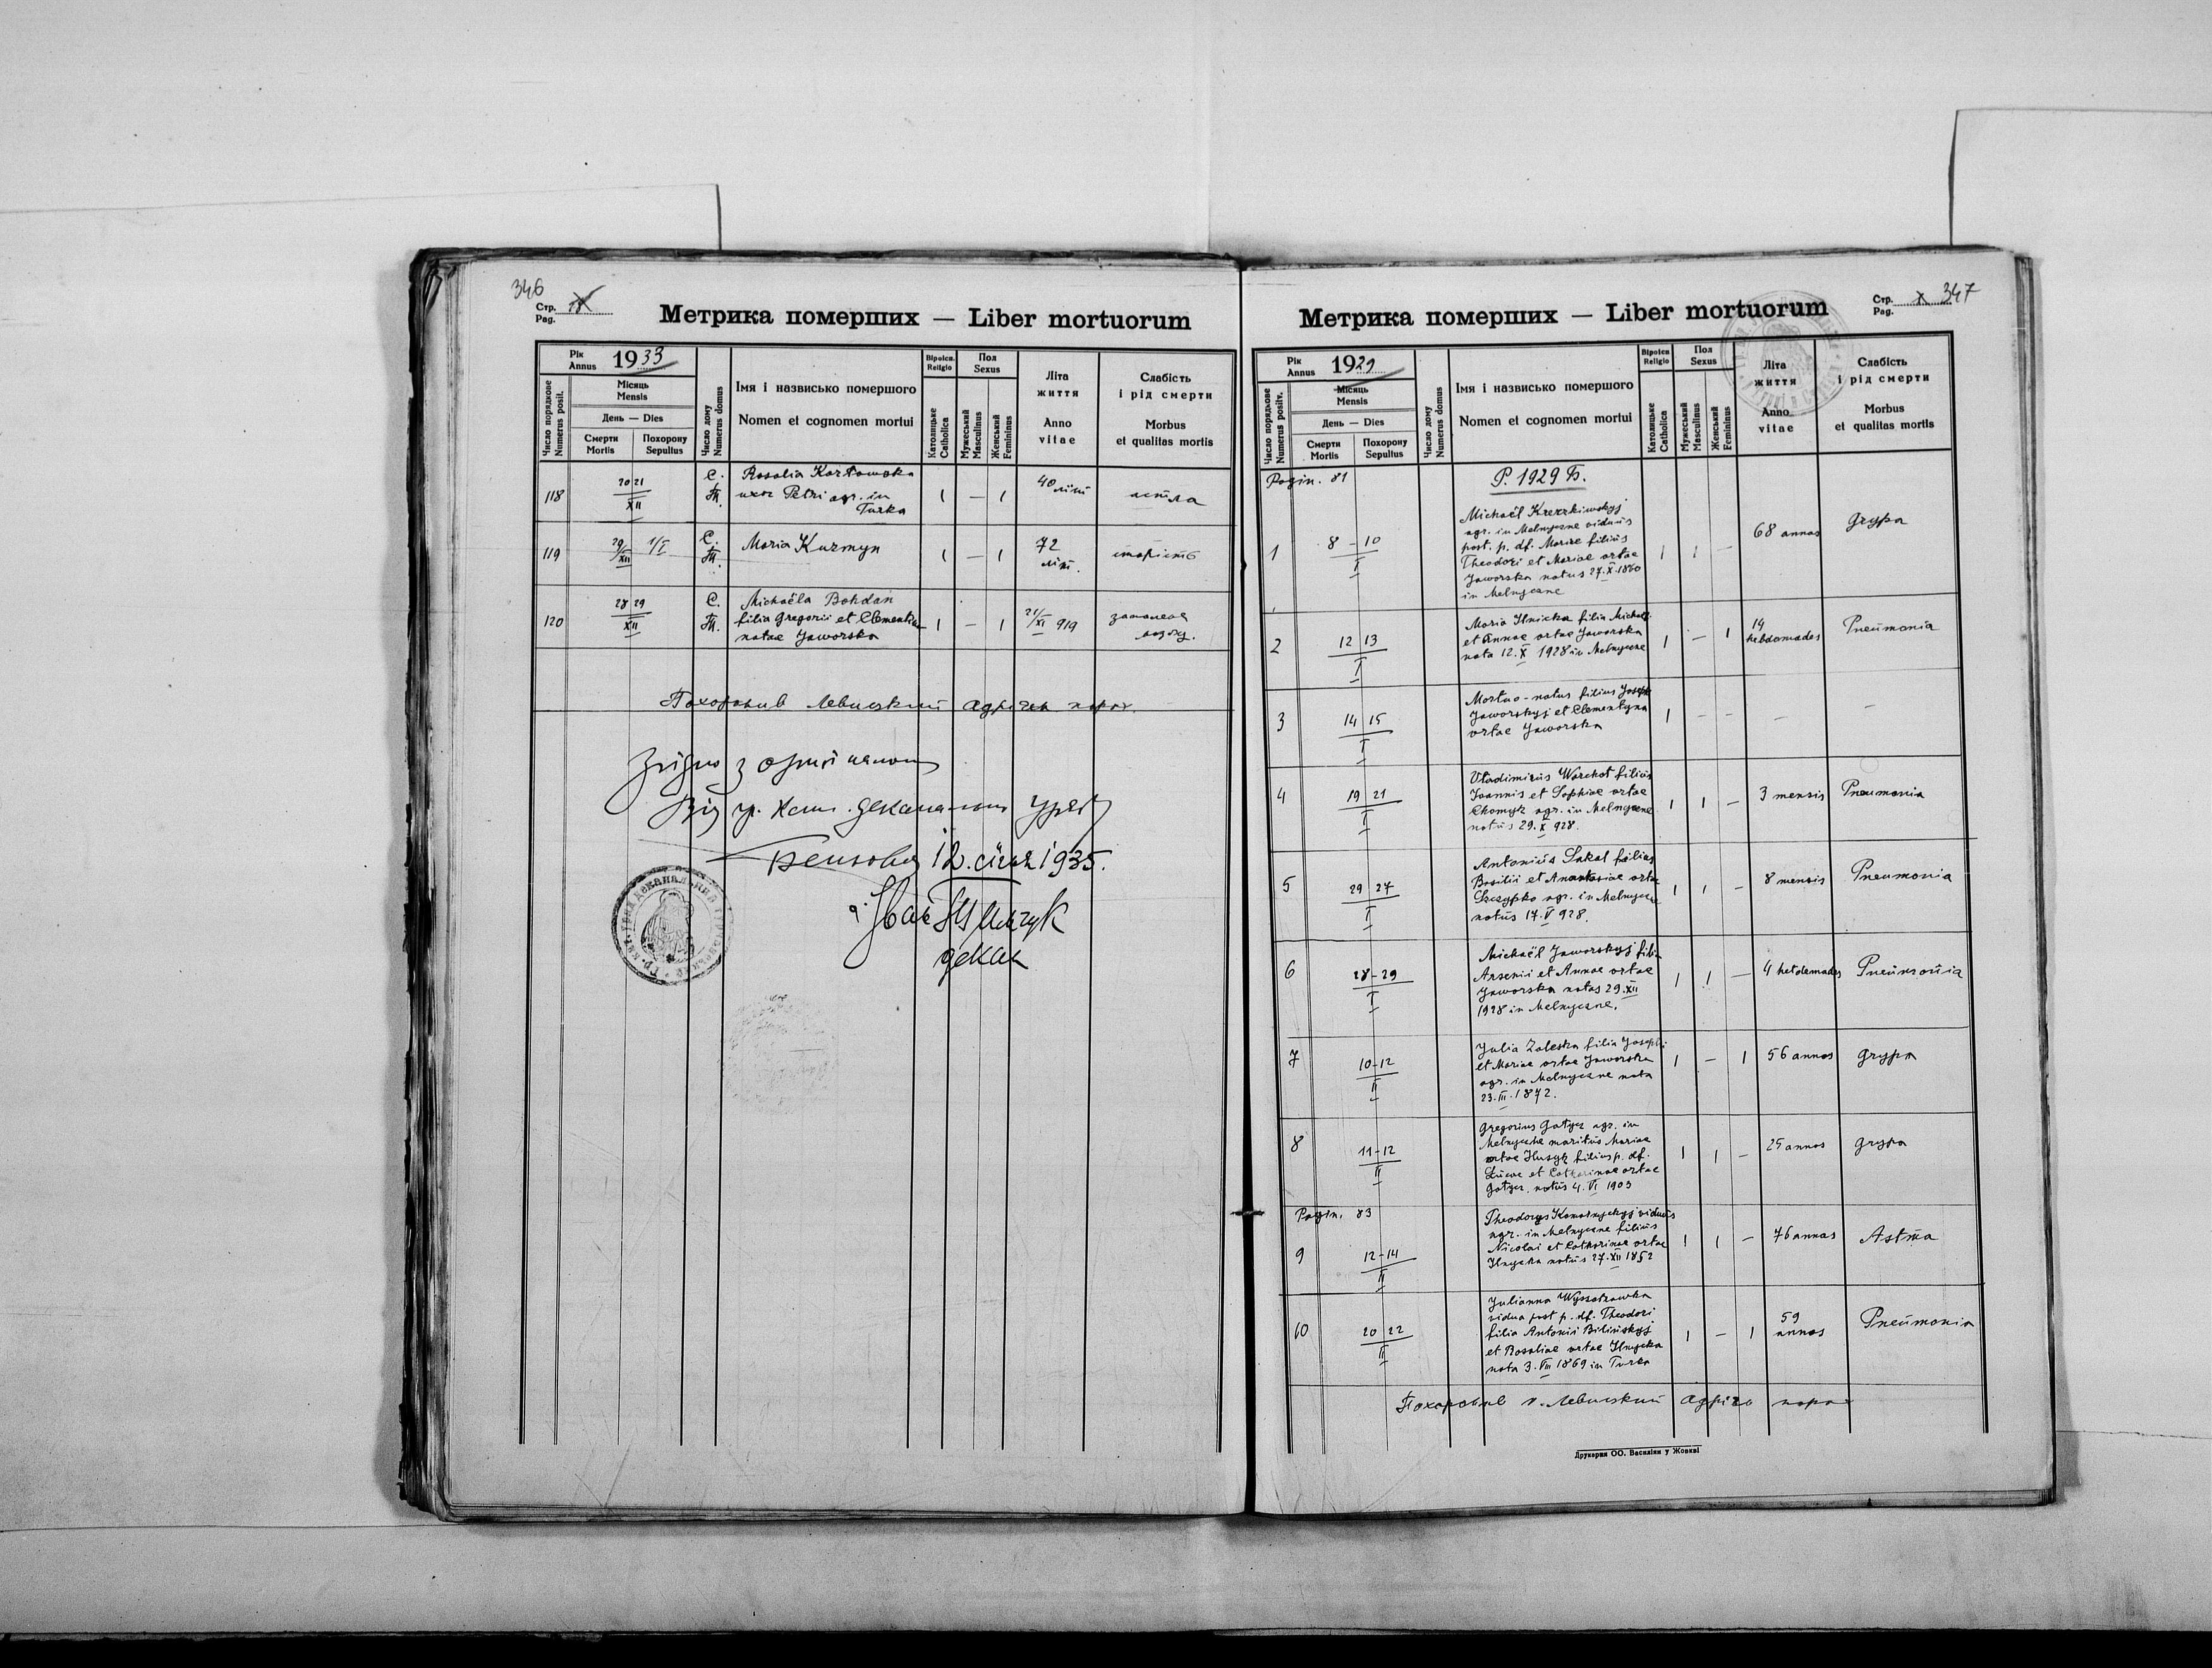 346
Стр.
Pag.
Метрика померших — Liber mortuorum
Рік
Annus 1933
Число порядкове
Numerus posit.
Місяць
Mensis
День — Dies
Смерти
Mortis
Похорону
Sepultus
Число дому
Numerus domus
Імя і назвисько помершого
Nomen et cognomen mortui
Віроісп.
Religio
Католицьке
Catholica
Пол
Sexus
Мужеський
Masculinus
Женський
Femininus
Літа
життя
Anno
vitae
Слабість
і рід смерти
Morbus
et qualitas mortis
118
20 21
XII
С.
Т.
Rosalia Kozłowska
uxor Petri agr. in
Turka
1 — 1
40 літ
астма
119
29/XII 1/I
С.
Т.
Maria Kuzmyn
1 — 1
72
літ.
старість
120
28 29
XII
С.
Т.
Michaëla Bohdan
filia Gregorii et Clementiae
natae Jaworska
1 — 1
21/XI 919
запалення
мозку.
Похоронив Левицкий парох.
Згідно з оригіналом
Від гр. кат. деканального уряду
12. січня 1935.
Іван
декан
Стр.
Pag.
x 347
Метрика померших — Liber mortuorum
Рік
Annus 1929
Число порядкове
Numerus positv.
Місяць
Mensis
День — Dies
Смерти
Mortis
Похорону
Sepultus
Число дому
Numerus domus
Імя і назвисько помершого
Nomen et cognomen mortui
Віроісп
Religio
Католицьке
Catholica
Пол
Sexus
Мужеський
Masculinus
Женський
Femininus
Літа
життя
Anno
vitae
Слабість
і рід смерти
Morbus
et qualitas mortis
Pagin. 81
Р. 1929 Б.
1
8 – 10
I
Michaël Krexzkiwskyj
agr. in Melnyczne viduus
post. p. df. Mariae filius
Theodori et Mariae ortae
Jaworska natus 27.X.1860
in Melnyczne
1 1 —
68 annos
Grypa
2
12 13
I
Maria Ilnicka filia Michaeli
et Annae ortae Jaworska
nata 12.X 1928 in Melnyczne
1 — 1
14
hebdomades
Pneumonia
3
14 15
I
Mortuo-natus filius Joseph
Jaworskyj et Clementyna
ortae Jaworska
1 — — — —
4
19 21
I
Vladimirus Warchoł filius
Joannis et Sophiae ortae
Chomyk agr. in Melnyczne
natus 29.X 928.
1 1 —
3 mensis
Pneumonia
5
29 27
I
Antonius Sakal filius
Basilii et Anastasiae ortae
agr. in Melnyczne
natus 17.V 928.
1 1 —
8 mensis
Pneumonia
6
28–29
I
Michaël Jaworskyj filius
Arsenii et Annae ortae
Jaworska natus 29.XII
1928 in Melnyczne.
1 1 —
4 hebdomades
Pneumonia
7
10–12
II
Julia Zaleska filia Josephi
et Mariae ortae Jaworska
agr. in Melnyczne nata
23.III.1872.
1 — 1
56 annos
Grypa
8
11–12
II
Gregorius Gatycz agr. in
Melnyczne maritus Mariae
ortae Husyk filius p. df.
Lucae et Catharinae ortae
Gatycz, natus 4.VI 1903
1 1 —
25 annos
Grypa
Pagin. 83
9
12–14
II
Theodorys Komarnyckyj viduus
agr. in Melnyczne filius
Nicolai et Catharinae ortae
Ilnycka natus 27.XII 1852
1 1 —
76 annos
Astma
10
20 22
II
Julianna Wyssotzawka
vidua post p. df. Theodori
filia Antonii Bilinskyj
et Rosaliae ortae Ilnycka
nata 3.VIII 1869 in Turka
1 — 1
59
annos
Pneumonia
Похоронив о. Левицкий парох
Друкарня ОО. Василіян у Жовкві